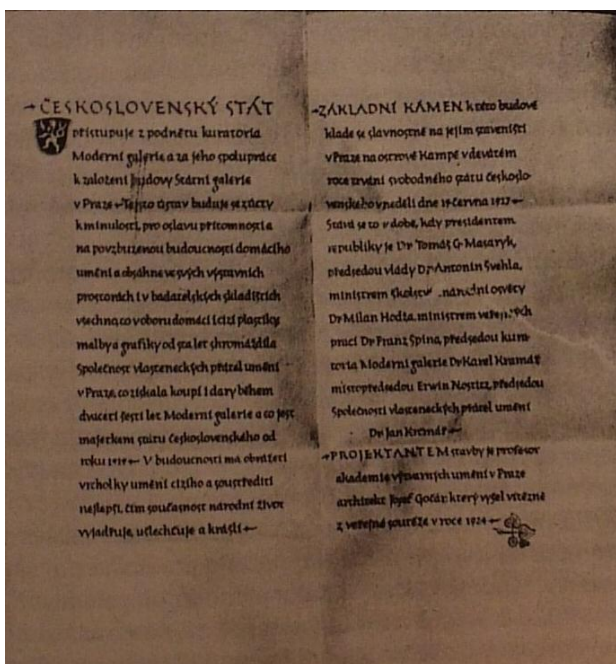 ČESKOSLOVENSKÝ STÁT
přistupuje z podnětu kuratoria
Moderní galerie a za jeho spolupráce
k založení budovy Státní galerie
v Praze. Tento ústav buduje se z úcty
k minulosti, pro oslavu přítomnosti a
na povzbuzenou budoucnosti domácího
umění a obsáhne ve svých výstavních
prostorách i v badatelských skladištích
všechno, co v oboru domácí i cizí plastiky,
malby a grafiky od sta let shromáždila
Společnost vlasteneckých přátel umění
v Praze, co získala koupí i dary během
dvaceti šesti let Moderní galerie a co jest
majetkem státu Československého od
roku 1919 V budoucnosti má obrážeti
vrcholky umění cizího a soustřediti
nejlepší, čím současnost národní život
vyjadřuje, ušlechťuje a krášlí
ZÁKLADNÍ KÁMEN k této budově
klade se slavnostně na jejím staveništi
v Praze na ostrově Kampě v devátém
roce trvání svobodného státu Českoslo-
venského v neděli dne 19 června 1927
Stává se to v době, kdy presidentem
republiky je Dr Tomáš G. Masaryk,
předsedou vlády Dr Antonín Švehla,
ministrem školství národní osvěty
Dr Milan Hodža, ministrem veřejných
prací Dr Franz Spina, předsedou kura-
toria Moderní galerie Dr Karel Kramář
místopředsedou Erwin Nostitz, předsedou
Společnosti vlasteneckých přátel umění
Dr Jan Kramář
PROJEKTANTEM stavby je profesor
akademie výtvarných umění v Praze
architekt Josef Gočár, který vyšel vítězně
z veřejné soutěže v roce 1924